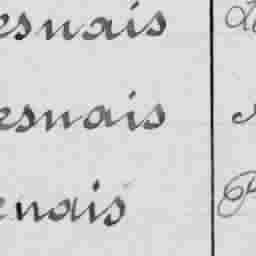 esnais
esnais
enais